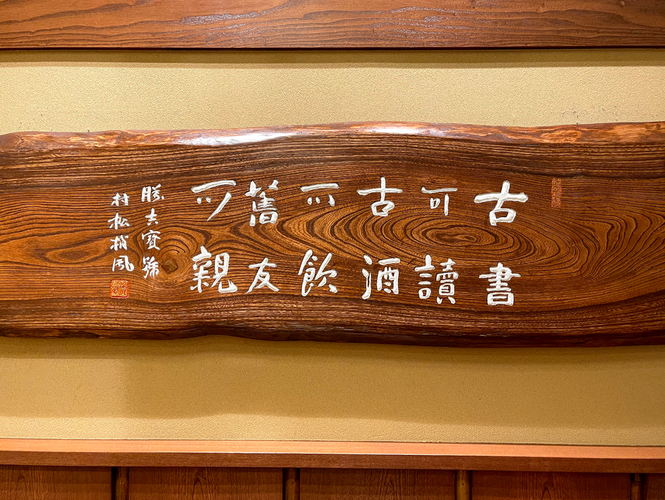 古書
可讀
古酒
可飲
舊友
可親
村松梢風